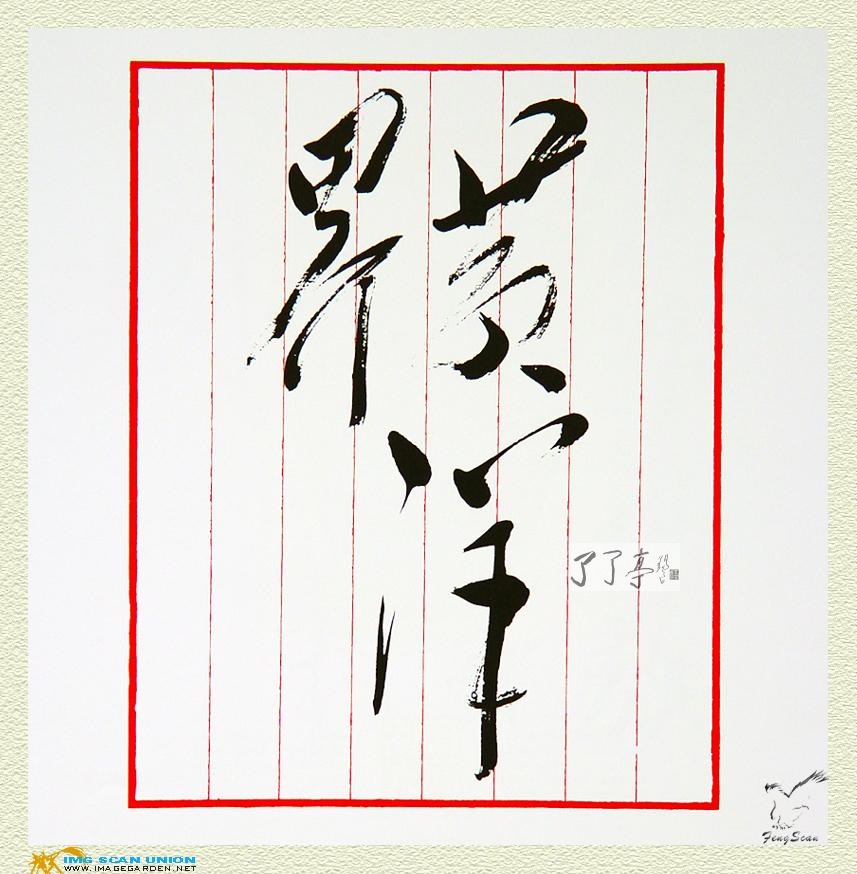 黄洋
界
了了亭
FengScan
IMG SCAN UNION
WWW.IMAGEGARDEN.NET